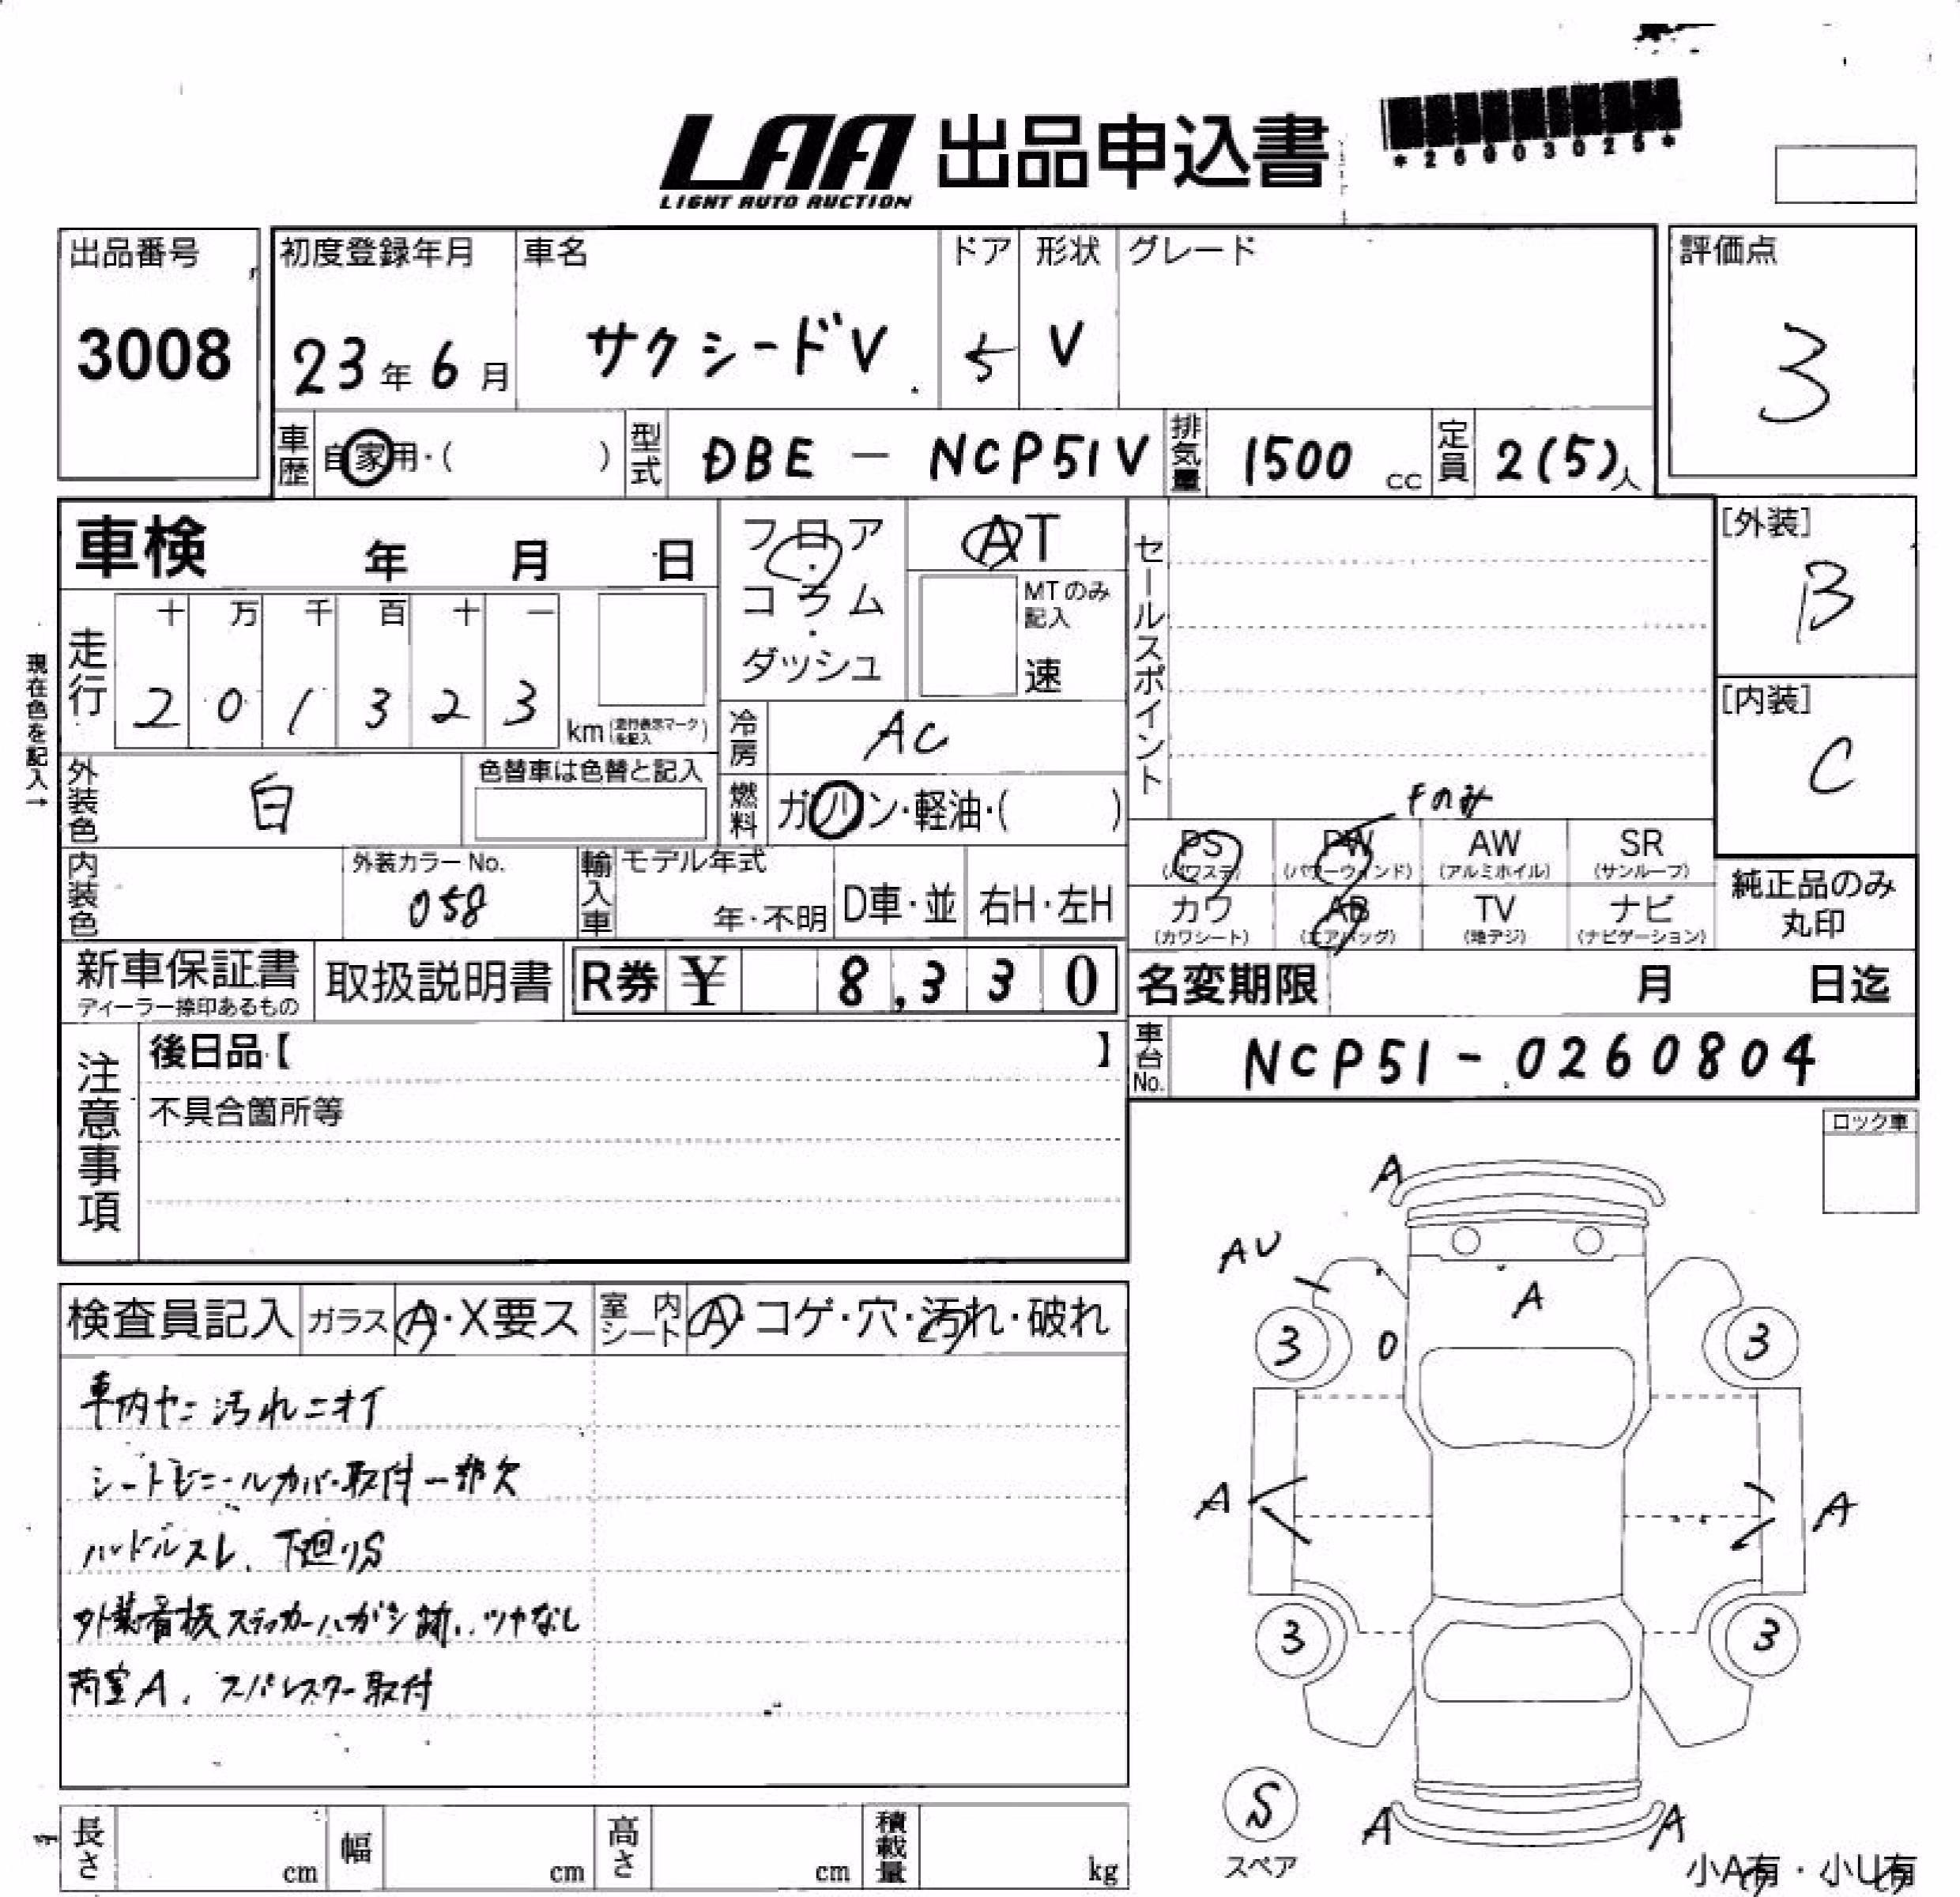 LAA 出品申込書
LIGHT AUTO AUCTION
*26003025*
出品番号
3008
初度登録年月
23年6月
車名
サクシードV
ドア
5
形状
V
グレード
評価点
3
車歴 自家用・( )
型式 DBE - NCP51V
排気量 1500 cc
定員 2(5)人
車検 年 月 日
フロア・コラム・ダッシュ
AT
MTのみ記入
速
セールスポイント
[外装]
B
[内装]
C
現在色を記入→
走行
十 万 千 百 十 一
2 0 1 3 2 3
km(走行表示マークを記入)
冷房 AC
外装色 白
色替車は色替と記入
燃料 ガソリン・軽油・( )
Fのみ
PS (パワステ)
PW (パワーウィンド)
AW (アルミホイル)
SR (サンルーフ)
カワ (カワシート)
AB (エアバッグ)
TV (地デジ)
ナビ (ナビゲーション)
純正品のみ
丸印
内装色
外装カラーNo.
058
輸入車
モデル年式
年・不明
D車・並
右H・左H
新車保証書
ディーラー捺印あるもの
取扱説明書
R券 ¥ 8,330
名変期限 月 日迄
車台No. NCP51-0260804
注意事項
後日品【 】
不具合箇所等
ロック車
検査員記入
ガラス A・X要ス
室内シート A・コゲ・穴・汚れ・破れ
車内ヤニ汚れニオイ
シートビニールカバー取付一部欠
ハンドルスレ、下廻りS
外装看板ステッカーハガシ跡、ツヤなし
荷室A、スパレスター取付
A
AU
A
3
0
3
A
A
3
3
S
スペア
A
A
小A有・小U有
長さ cm
幅 cm
高さ cm
積載量 kg